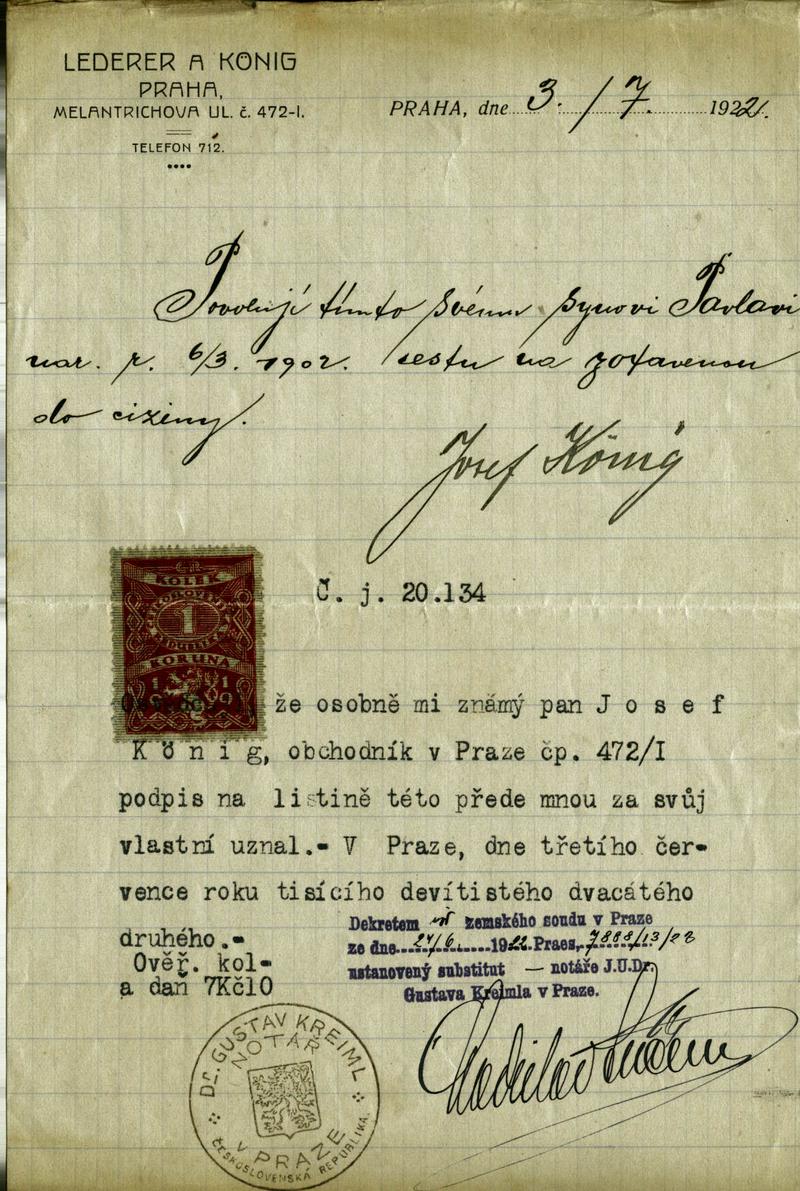 LEDERER A KÖNIG
PRAHA,
MELANTRICHOVA UL. č. 472-I.
TELEFON 712.
PRAHA, dne 3./7. 1922.
Povoluji tímto svému synovi Pavlovi
nar. r. 6/3. 1902. cestu na zotavenou
do ciziny.
Josef König
KOLEK
1
KORUNA
Č. j. 20.134
že osobně mi známý pan J o s e f
K ö n i g, obchodník v Praze čp. 472/I
podpis na listině této přede mnou za svůj
vlastní uznal.- V Praze, dne třetího čer-
vence roku tisícího devítistého dvacátého
druhého.-
Ověř. kol-
a daň 7Kč10
Dekretem zemského soudu v Praze
ze dne 27/6 1922 Praes.
ustanovený substitut — notáře J.U.Dr.
Gustava Kreimla v Praze.
Dr. GUSTAV KREIML
NOTÁŘ
V PRAZE
ČESKOSLOVENSKÁ REPUBLIKA